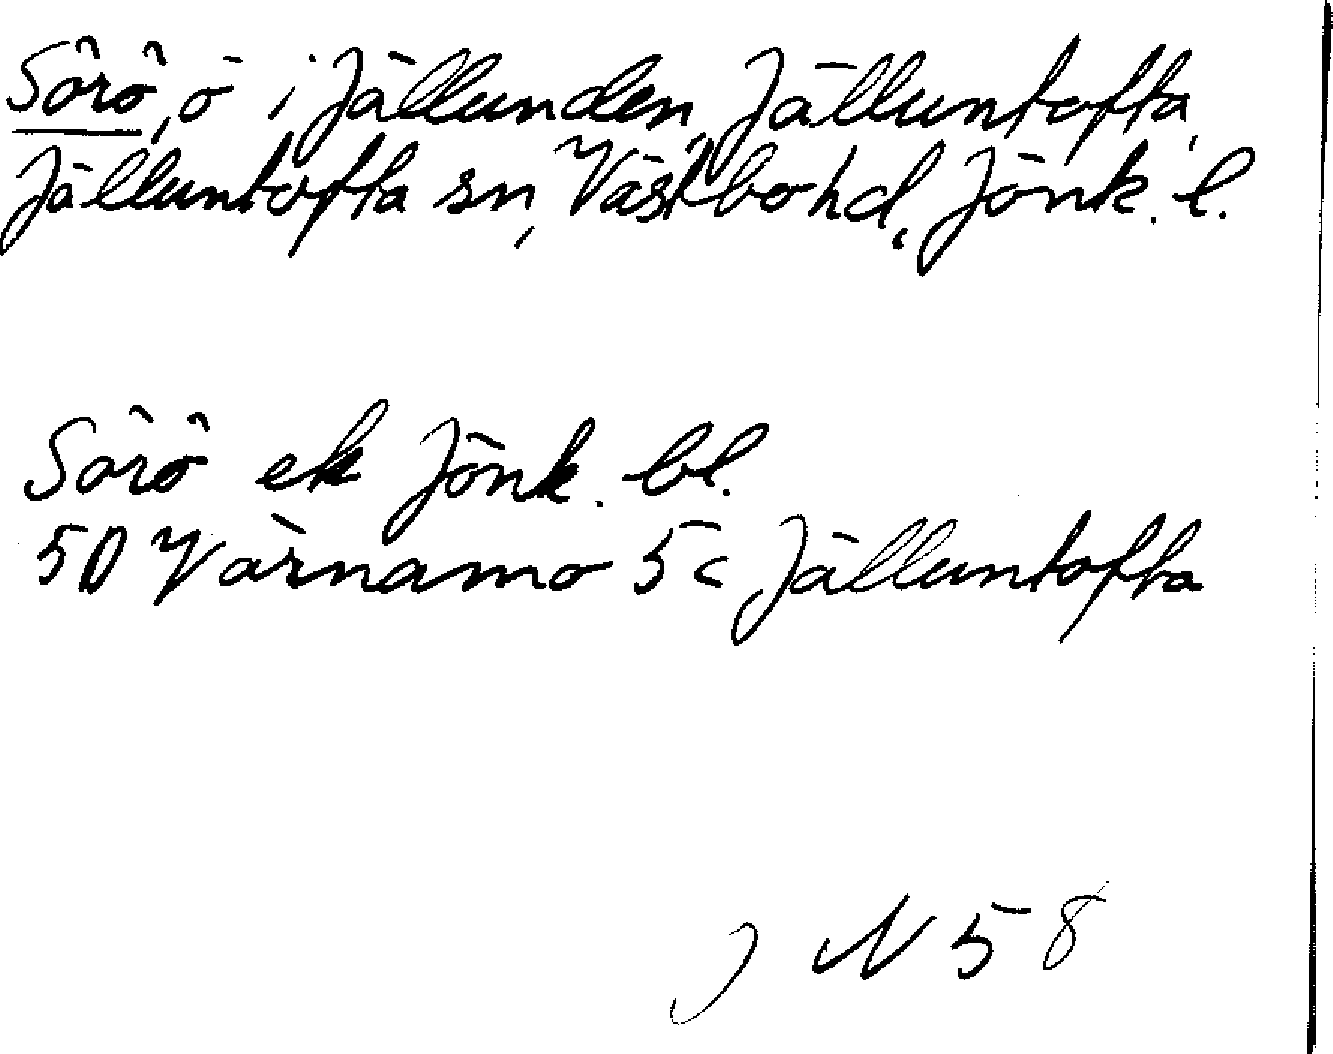 Sörö, ö i Jällunden, Jälluntofta,
Jälluntofta sn, Västbo hd, Jönk. l.
Sörö ek Jönk. bl.
5D Värnamo 5c Jälluntofta
J N 58